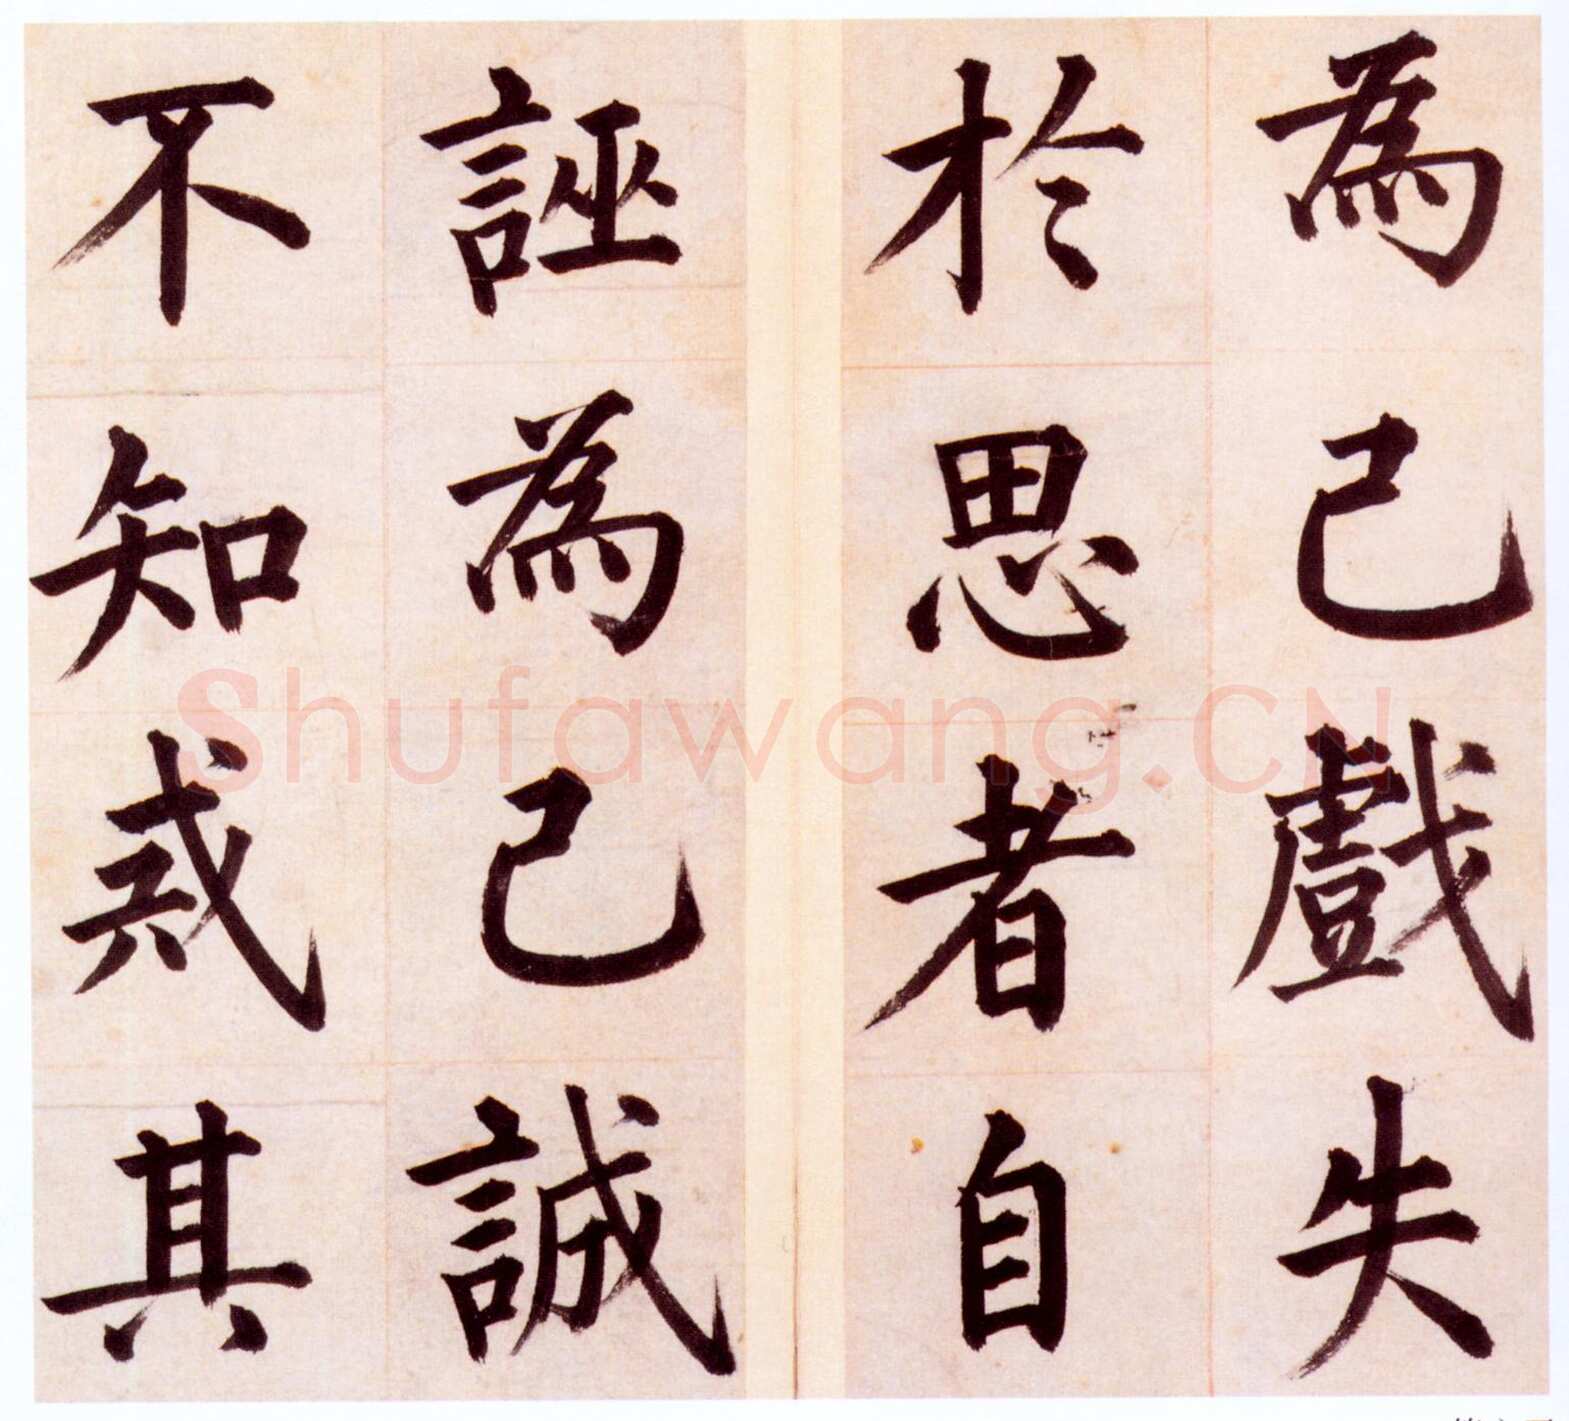 為己戲失
於思者自
誣為己誠
不知戒其
Shufawang.CN